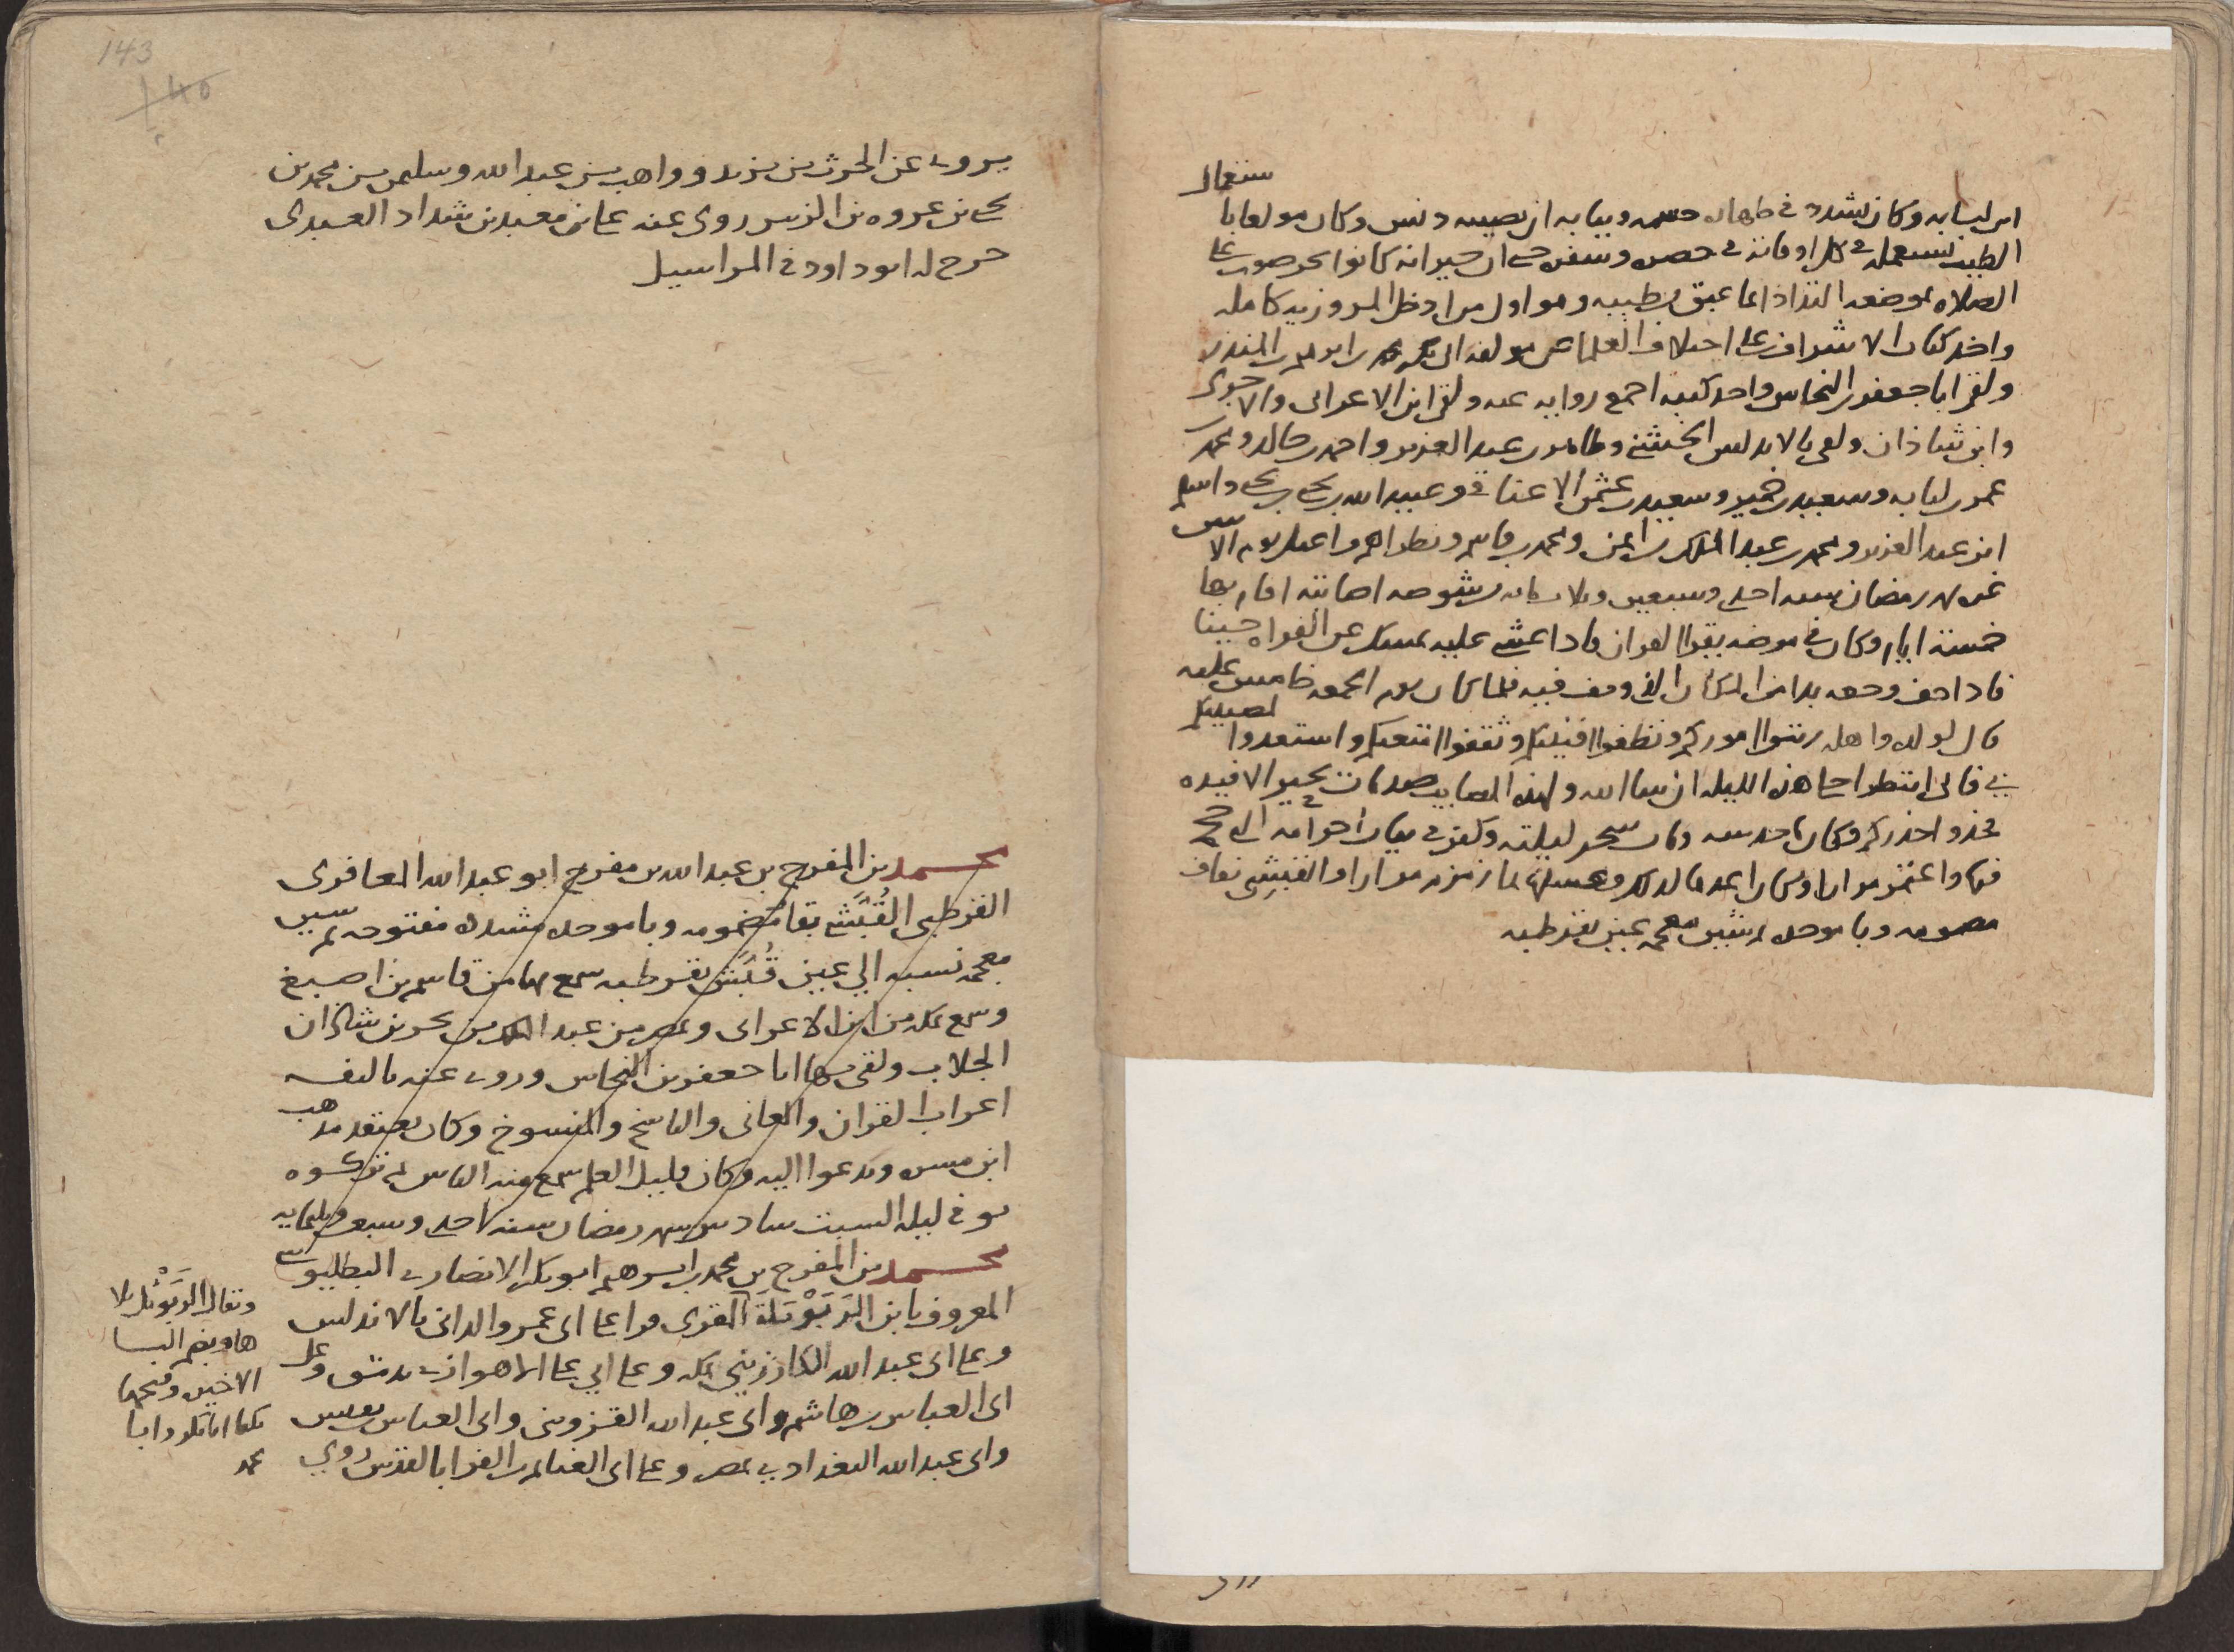 ابن لبابه وكان يشدد في طهاره جسمه وثيابه ان يصيبه دنس وكان مولعا با
ستعمال
الطيب يستعمله في كل اوقاته في حضره وسفره حتى ان جيرانه كانوا يحرصون على
الصلاه بموضعه التذاذا بما عبق من طيبه وهو اول من ادخل المروزيه كامله
واخذ كتاب الاشراف على اختلاف العلما عن مولفه ابي بكر محمد بن ابرهيم بن المنذر
ولقي ابا جعفر النحاس واخذ كتبه اجمع روايه عنه ولقي ابن الاعرابي والاجري
وابن شاذان ولقي بالاندلس الخشني وطاهر بن عبد العزيز واحمد بن خالد ومحمد بن
عمر بن لبابه وسعيد بن خمير وسعيد بن عثمن الاعناقي وعبيد الله بن يحيى بن يحيى واسلم
ابن عبد العزيز ومحمد بن عبد الملك بن ايمن ومحمد بن قاسم ونظراهم واعتل يوم الاثنين
غره رمضان سنه احدى وسبعين وثلاث مائه بشوصه اصابته اقام بها
خمسه ايام وكان في مرضه يقرا القران فاذا غشي عليه يمسك عن القراه حينا
فاذا خف وجعه بدا من المكان الذي وقف فيه فلما كان يوم الجمعه خامس علته
قال لولده واهله رتبوا اموركم ونظفوا افنيتكم وثقفوا امتعتكم واستعدوا
لمصيبتكم
بي فاني منتظر احيا هذه الليله ان شا الله ولهذه المصايب صدمات تحير الافيده
فخذوا حذركم وكان كما حدسه ومات سحر ليلته وكفن في ثياب احرامه التي حج
فيها واعتمر مرارا وكان اعدها لذلك وغسلها بما زمزم مرارا والقبشي بقاف
مضمومه وبا موحده وشين معجمه عين بقرطبه
143
يروى عن الحرث بن يزيد وواهب بن عبد الله وسليمن بن محمد بن
يحيى بن عروه بن الزبير روى عنه علي بن معبد بن شداد العبدي
خرج له ابو داود في المراسيل
محمد بن المفرج بن عبد الله بن مفرج ابو عبد الله المعافري
القرطبي القُبَّشي بقاف مضمومه وبا موحده مشدده مفتوحه ثم شين
معجمه نسبه الي عين قُبَّش بقرطبه سمع بها من قاسم بن اصبغ
وسمع بمكه من ابن الاعرابي وبمصر من عبد الملك بن بحر بن شاذان
الجلاب ولقي بها ابا جعفر بن النحاس وروى عنه تاليفه
اعراب القران والمعاني والناسخ والمنسوخ وكان يعتقد مذهب
ابن مسره ويدعوا اليه وكان قليل العلم سمع منه الناس ثم تركوه
توفي ليله السبت سادس شهر رمضان سنه احدى وسبعين وثلثمايه
محمد بن المفرج بن محمد بن ابرهيم ابو بكر الانصاري البطليوسي
المعروف بابن الرَبَوْبَلَة المقري قرا على ابي عمرو الداني بالاندلس
وعلى ابي عبد الله الكارزيني بمكه وعلى ابي علي الاهوازي بدمشق وعلى
ابي العباس بن هاشم وابي عبد الله القزويني وابي العباس بن نفيس
وابي عبد الله البغدادي بمصر وعلى ابي الغنايم بن الفرا بالقدس روى
ويقال الربوبل بلا
ها وبضم البا
الاخيره وفتحها
يكنا ابا بكر وابا
محمد